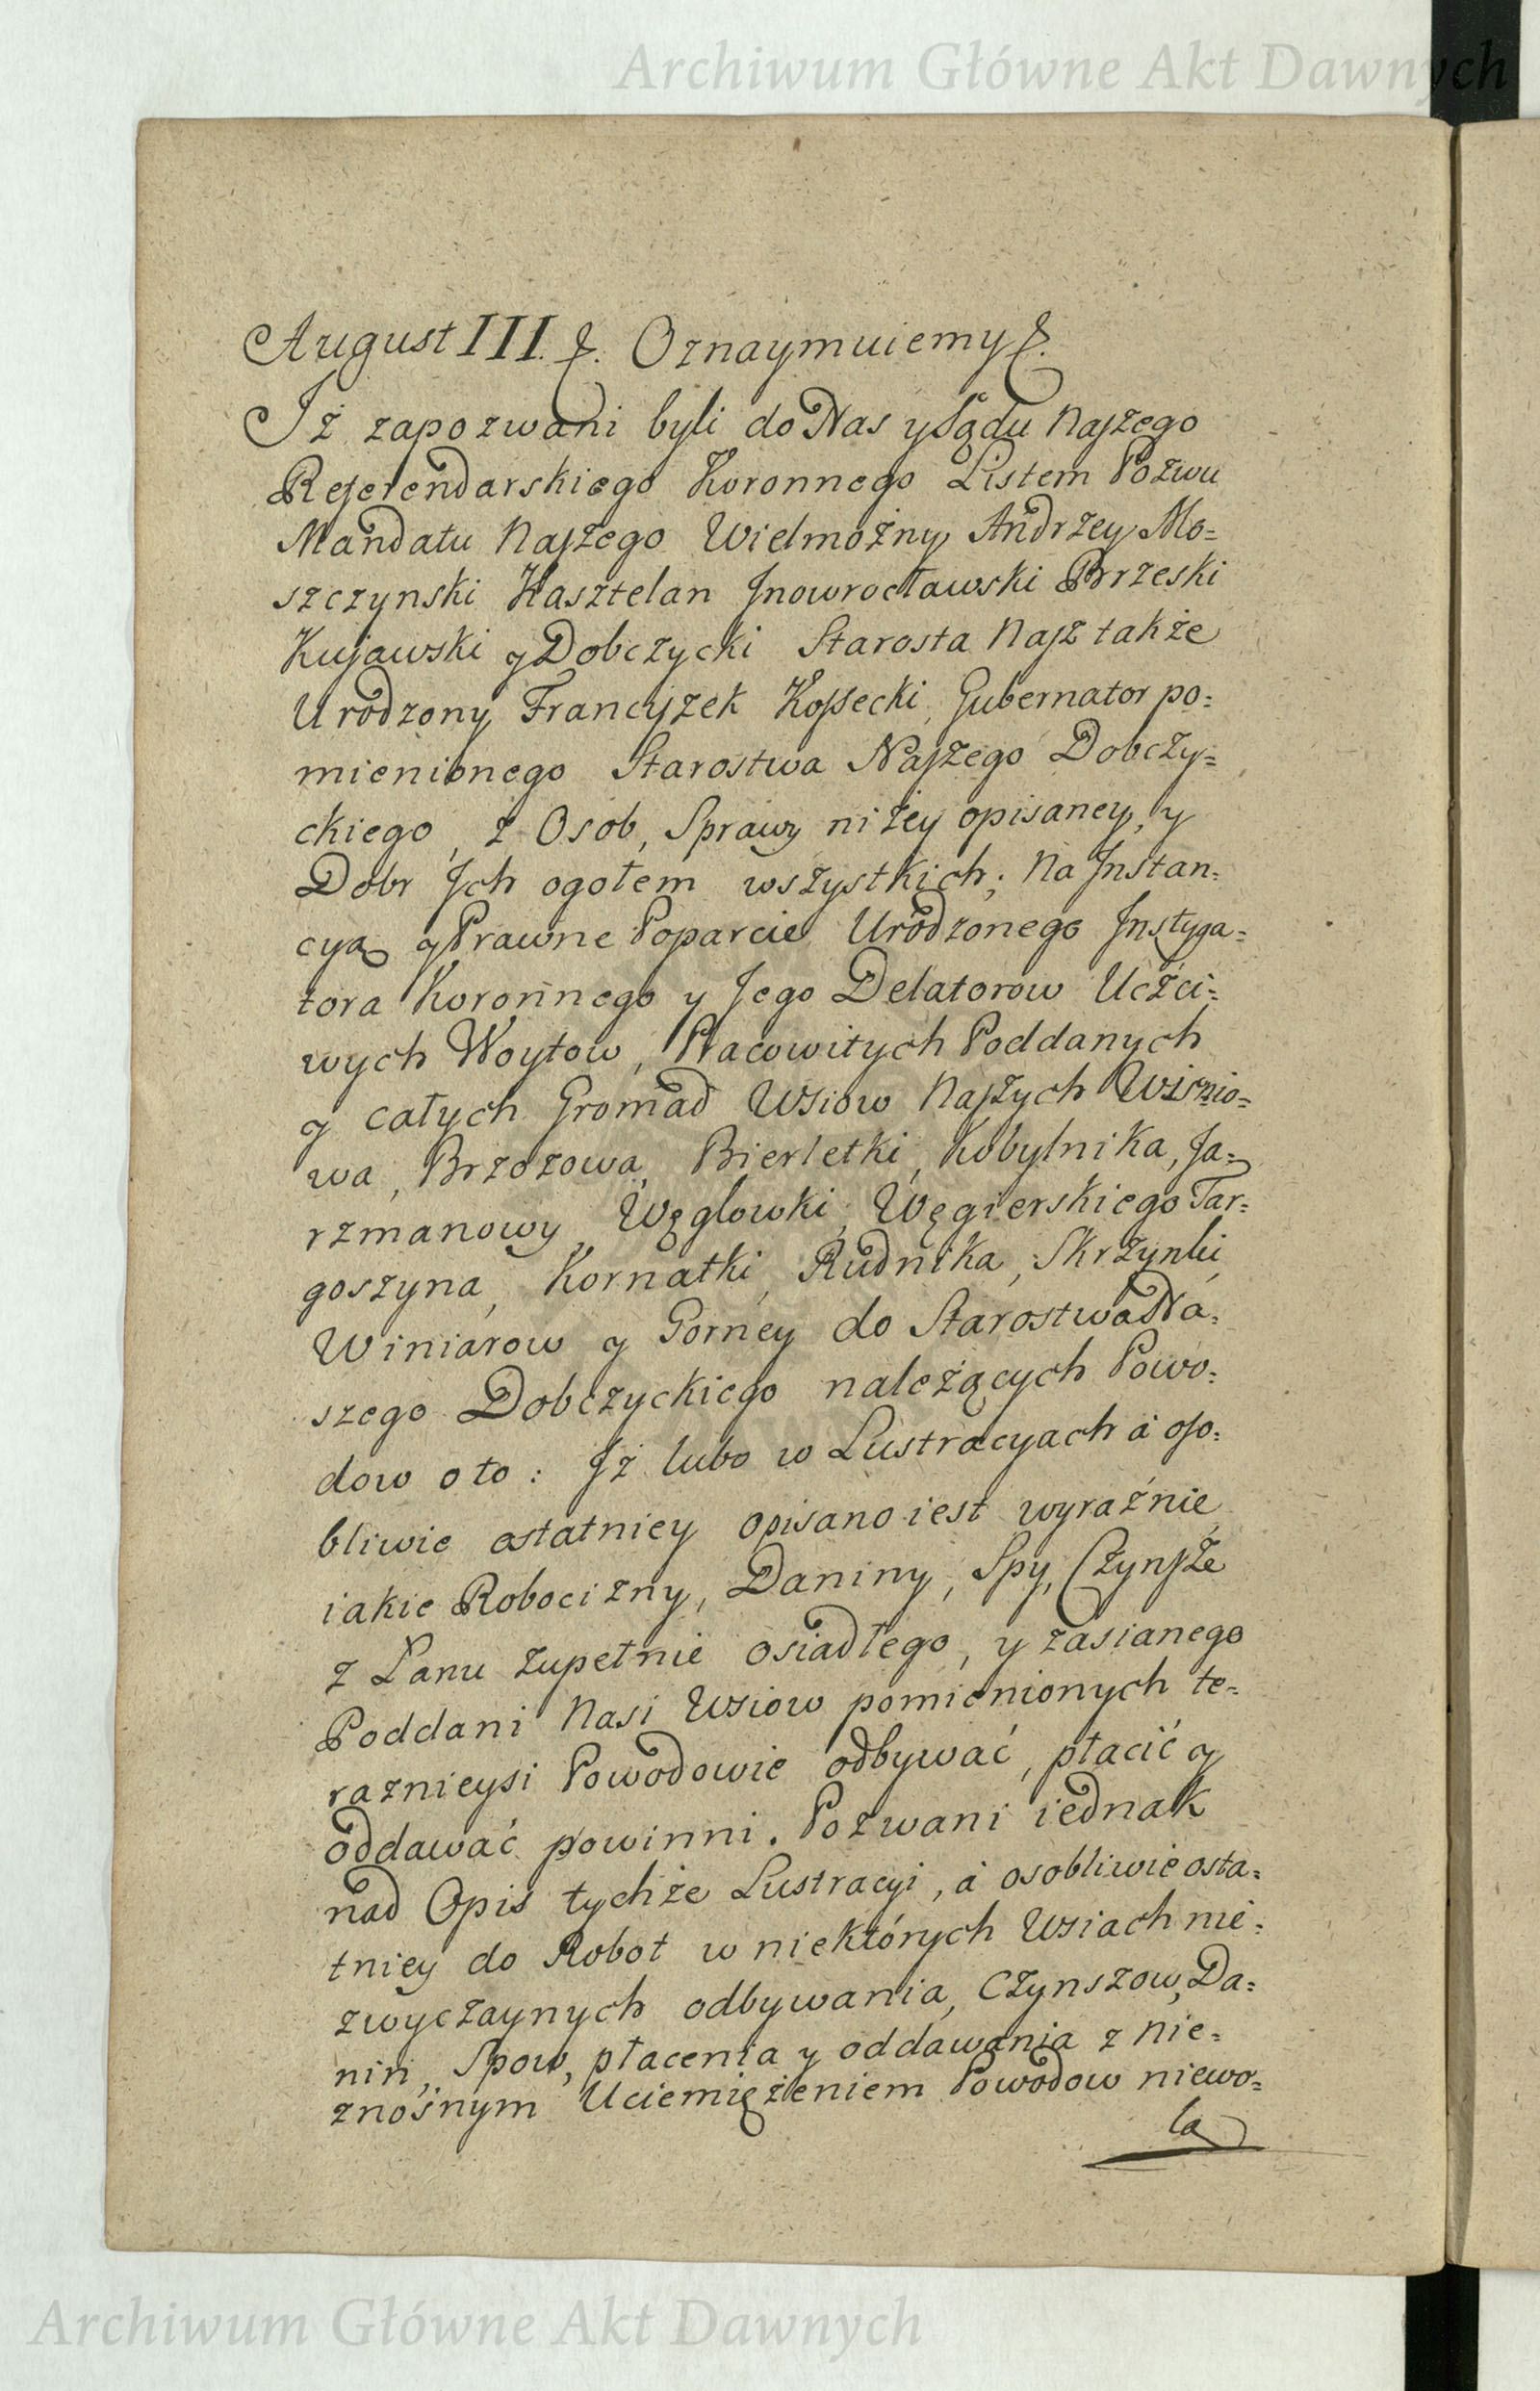 Archiwum Główne Akt Dawnych
August III. &. Oznaymuiemy &.
Iż zapozwani byli do Nas y Sądu Naszego
Referendarskiego Koronnego Listem Pozwu
Mandatu Naszego Wielmożny Andrzey Mo=
szczynski Kasztelan Inowrocławski Brzeski
Kujawski y Dobczycki Starosta Nasz także
Urodzony Franciszek Kossecki, Gubernator po=
mienionego Starostwa Naszego Dobczy=
ckiego, z Osob, Sprawy niżey opisaney, y
Dobr Ich ogołem wszystkich; Na Instan=
cyą y Prawne Poparcie Urodzonego Instyga=
tora Koronnego y Jego Delatorow Uczci=
wych Woytow, Pracowitych Poddanych
y całych Gromad Wsiow Naszych Wisnio=
wa, Brzozowa, Bierletki, Kobylnika, Ja=
rzmanowy, Węglowki, Węgierskiego Tar=
goszyna, Kornatki, Rudnika, Skrzynki,
Winiarow y Gorney do Starostwa Na=
szego Dobczyckiego należących Powo=
dow oto: Iż lubo w Lustracyach a oso=
bliwie ostatniey opisano iest wyraźnie
iakie Robocizny, Daniny, Spy, Czynsze
z Łanu zupełnie osiadłego, y zasianego
Poddani Nasi Wsiow pomienionych te=
raznieysi Powodowie odbywać, płacić y
oddawać powinni. Pozwani iednak
nad Opis tychże Lustracyi, a osobliwie osta=
tniey do Robot w niektórych Wsiach nie=
zwyczaynych odbywania, Czynszow, Da=
nin, Spow, płacenia y oddawania z nie=
znośnym Uciemiężeniem Powodow niewo=
lą
Archiwum Główne Akt Dawnych